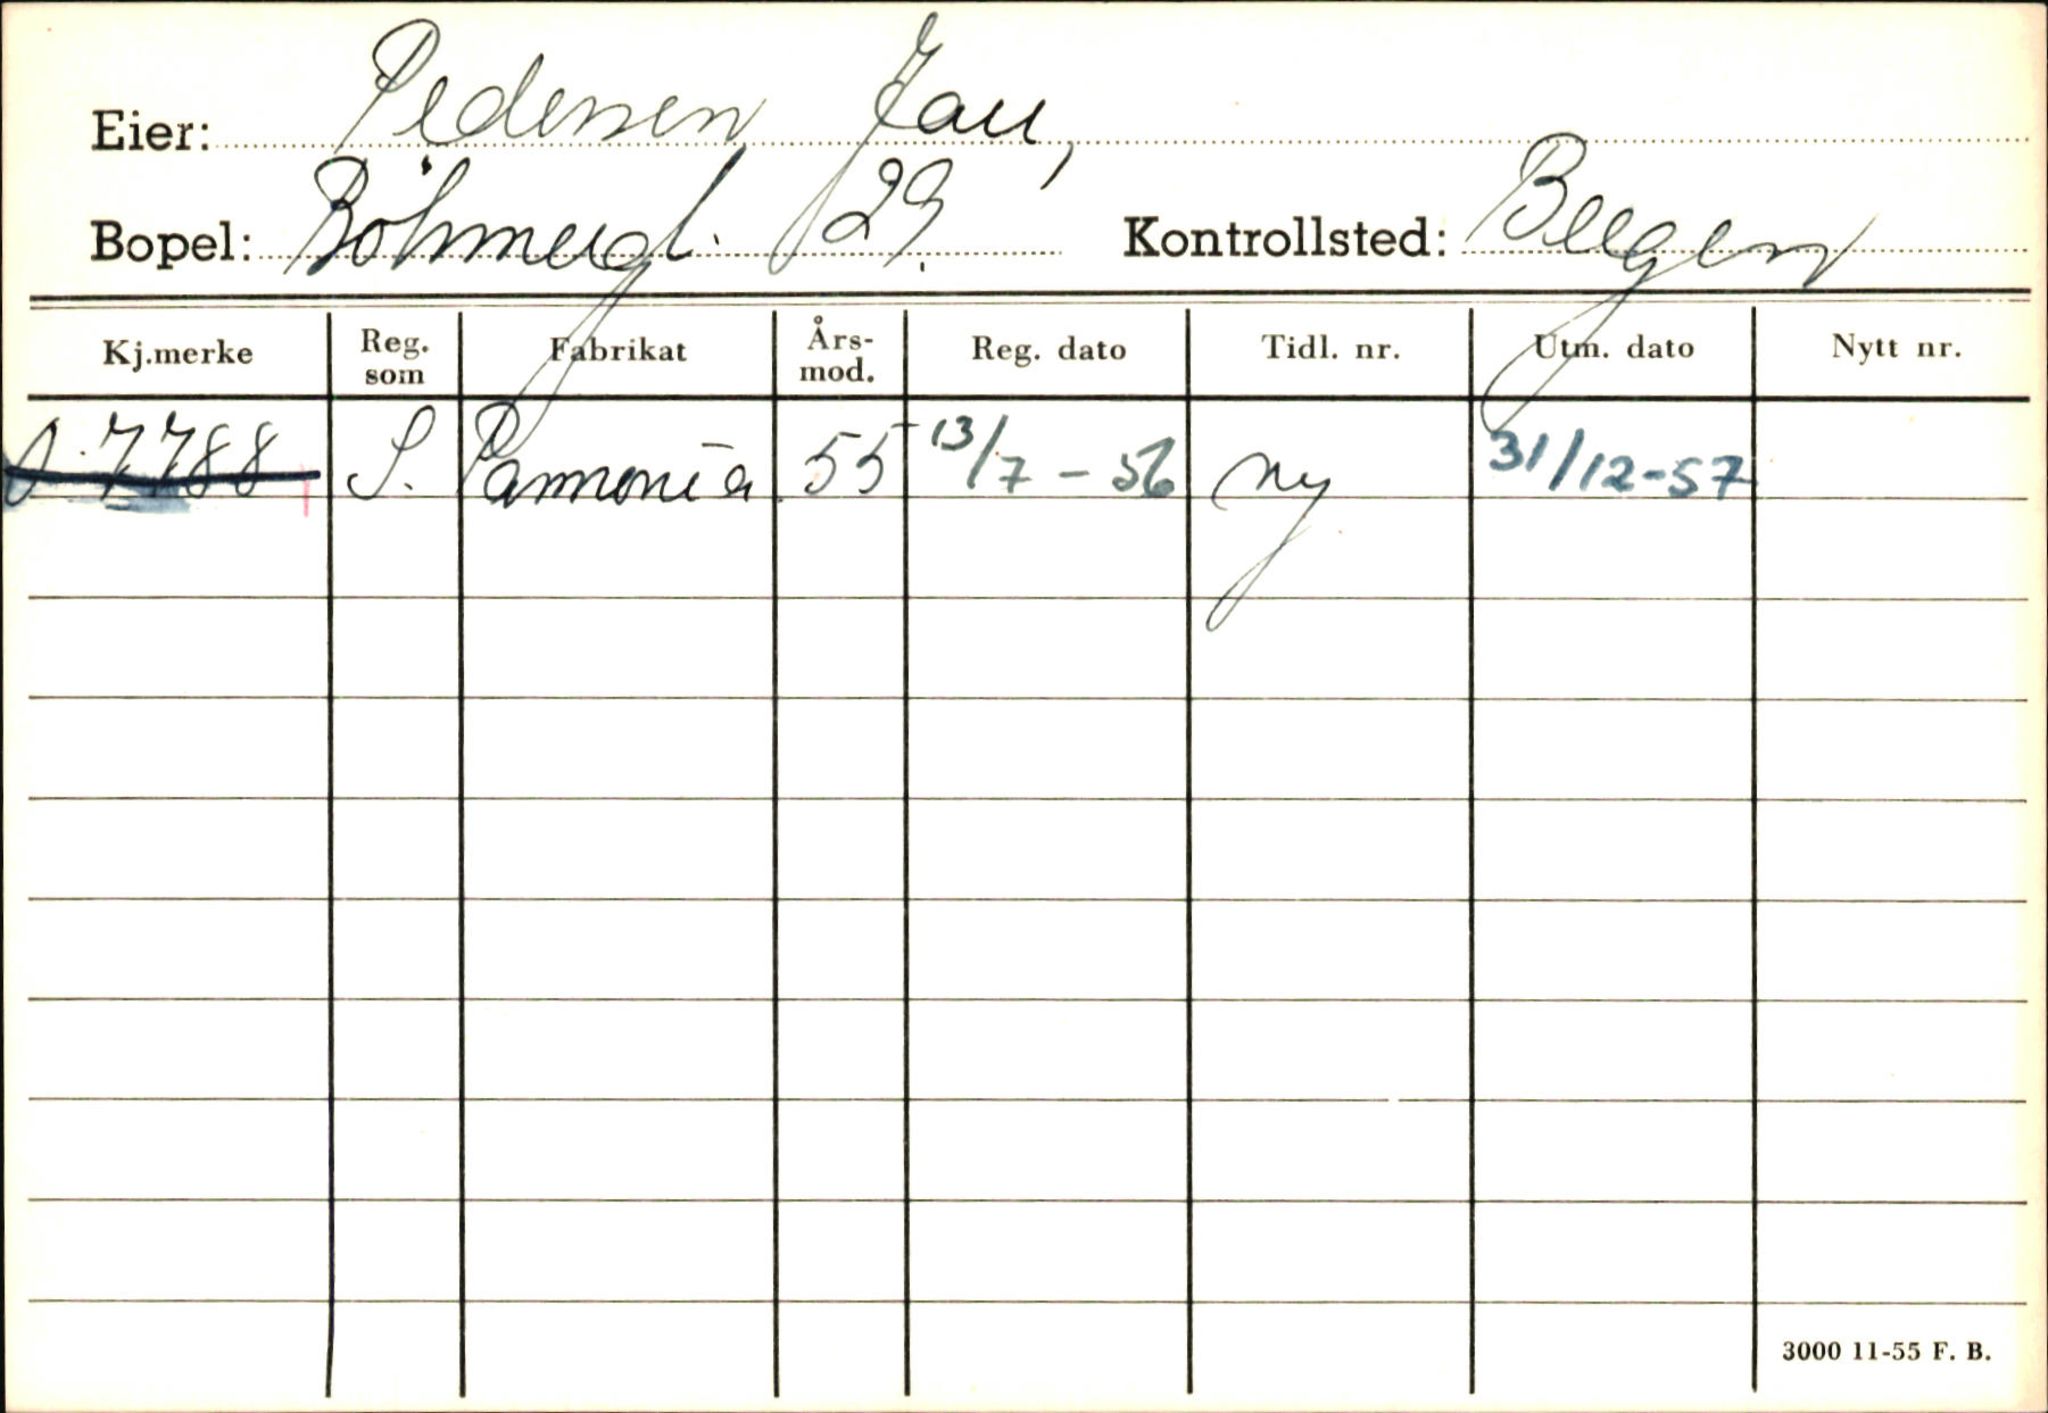 Eier: Pedersen Jan,
Bopel: Böhmergt. 29. Kontrollsted: Bergen
Kj.merke Reg. som Fabrikat Års- mod. Reg. dato Tidl. nr. Utm. dato Nytt nr.
O.7788 S. Pannonia 55 13/7 - 56 ny 31/12-57
3000 11-55 F. B.